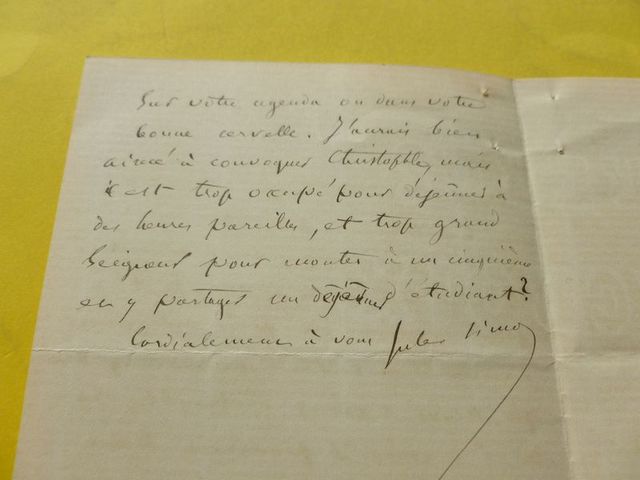 Sur votre agenda ou dans votre
bonne cervelle. J'aurais bien
aimé à convoquer Christophle, mais
il est trop occupé pour déjeuner à
des heures pareilles, et trop grand
Seigneur pour monter à un cinquième
en y partager un déjeuner d'étudiant ?
Cordialement à vous Jules Simon